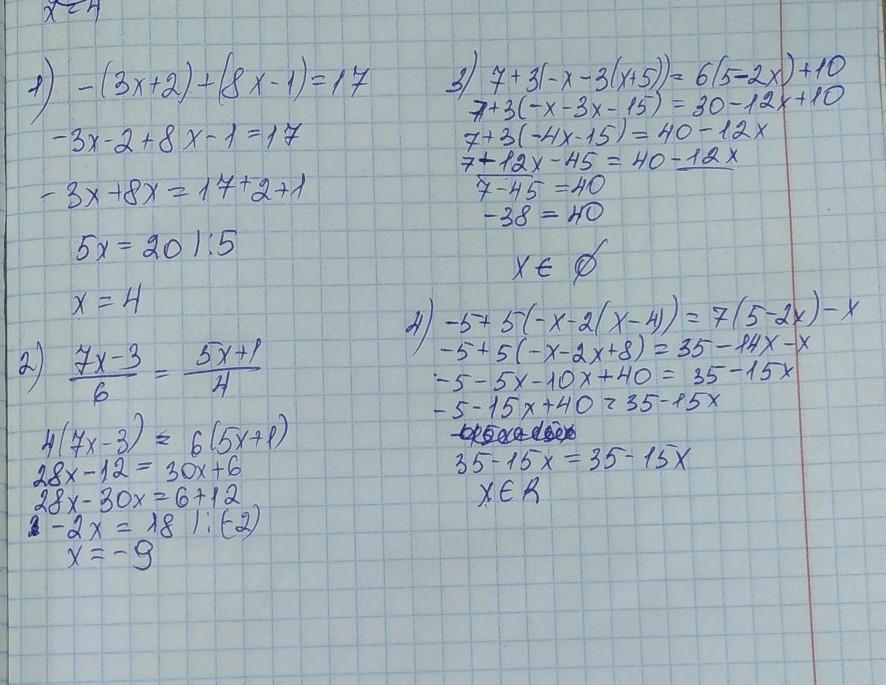 x=4
1) -(3x+2)+(8x-1)=17
-3x-2+8x-1=17
-3x+8x=17+2+1
5x=20 |:5
x=4
2) \frac{7x-3}{6} = \frac{5x+1}{4}
4(7x-3) = 6(5x+1)
28x-12=30x+6
28x-30x=6+12
-2x = 18 |:(-2)
x=-9
3) 7+3(-x-3(x+5))=6(5-2x)+10
7+3(-x-3x-15)=30-12x+10
7+3(-4x-15)=40-12x
7-12x-45=40-12x
7-45=40
-38=40
x∈ ∅
4) -5+5(-x-2(x-4))=7(5-2x)-x
-5+5(-x-2x+8)=35-14x-x
-5-5x-10x+40=35-15x
-5-15x+40=35-15x
35-15x=35-15x
x∈R